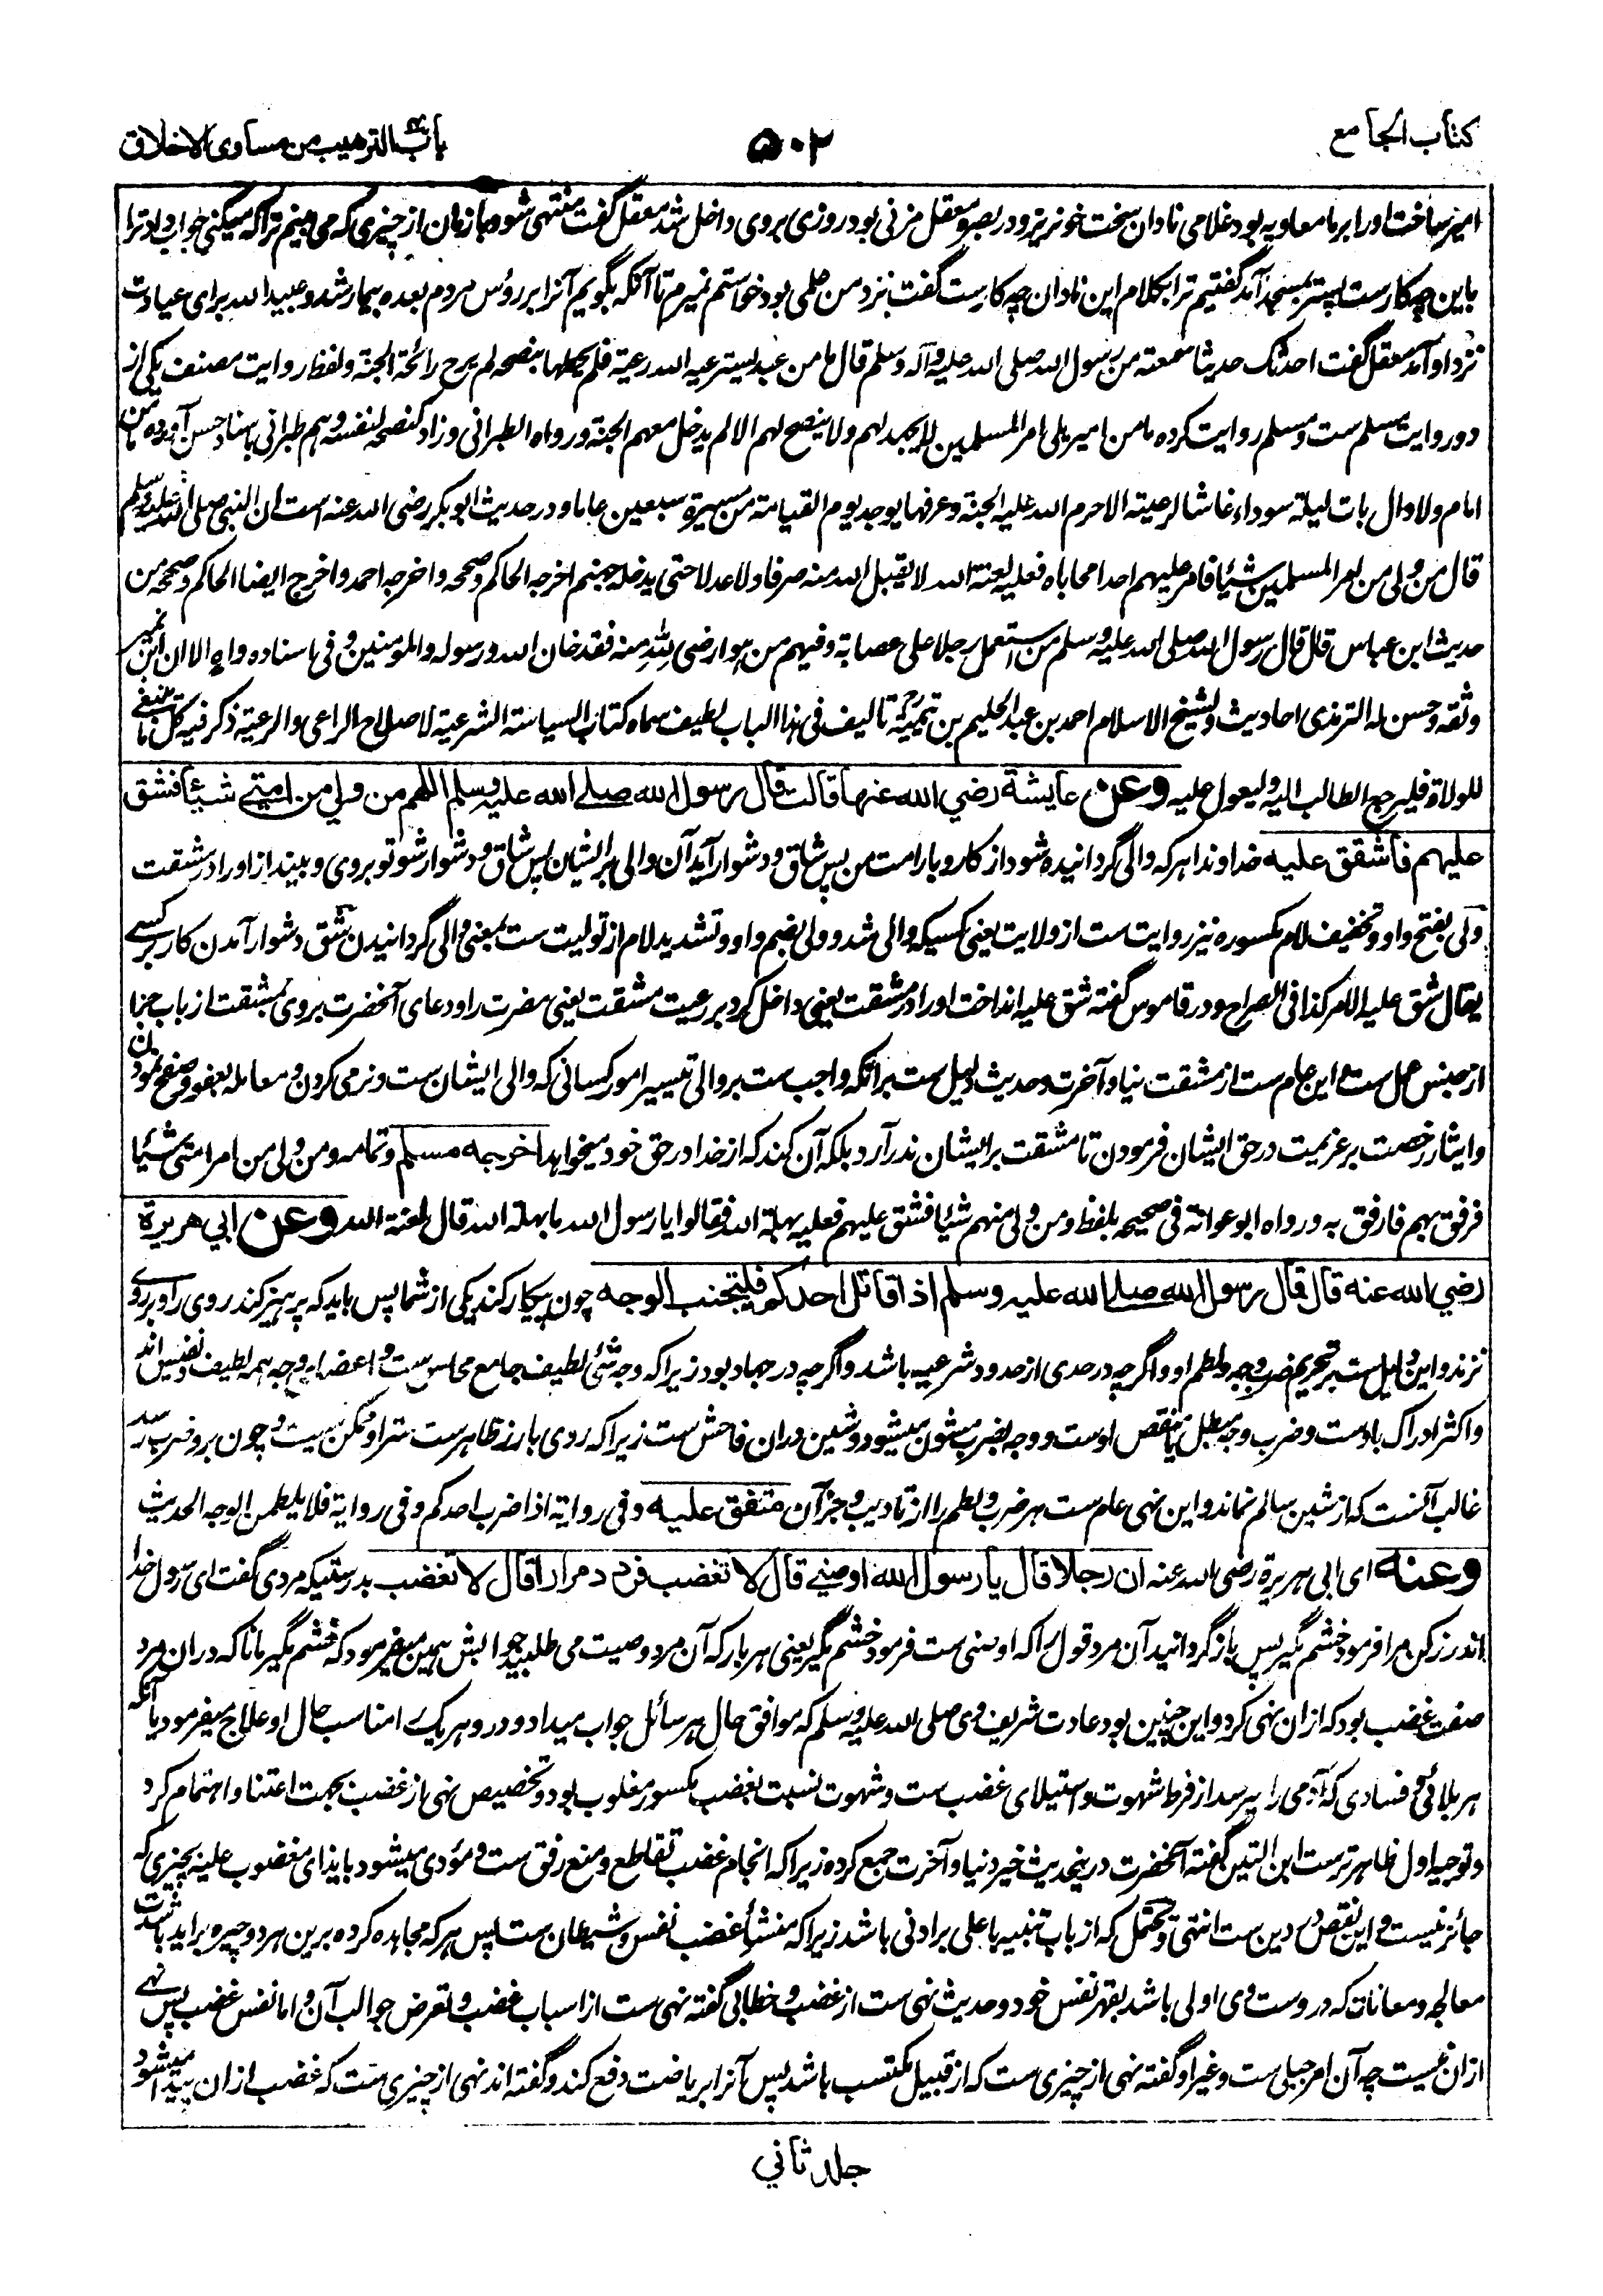 كتاب الجامع
۵۰۲
باب الترهيب من مساوى الاخلاق
امیر ساخت اورا بر ما معاویه بود غلامی نادان سخت خونریز و در بصره معقل مزنی بود روزی بروی داخل شد معقل گفت منتهی شو و باز مان از چیزی که می بینم ترا که میکنی جواب داد ترا
باین چه کارست پستر بمسجد آمد گفتیم ترا بکلام این نادان چه کارست گفت نزد من علمی بود خواستم نمیرم تا آنکه بگویم آنرا بر رؤس مردم بعده بیمار شد و عبید الله برای عیادت
نزد او آمد معقل گفت احدثک حدیثا سمعته من رسول الله صلی الله علیه و آله وسلم قال ما من عبد یسترعیه الله رعیة فلم یحطها بنصحه لم یرح رائحة الجنة و لفظ روایت مصنف یکی از
دو روایت مسلم ست و مسلم روایت کرده ما من امیر یلی امر المسلمین لا یجهد لهم ولا ینصح لهم الا لم یدخل معهم الجنة و رواه الطبرانی و زاد کنصحه لنفسه و هم طبرانی باسناد حسن آورده ما من
امام ولا وال بات لیلة سوداء غاشا لرعیته الا حرم الله علیه الجنة و عرفها یوجد یوم القیامة من مسیرة سبعین عاما و در حدیث ابو بکر رضی الله عنه است ان النبی صلی الله علیه وسلم
قال من ولی من امر المسلمین شیئا فامر علیهم احدا محاباه فعلیه لعنة الله لا یقبل الله منه صرفا ولا عدلا حتی یدخله جهنم اخرجه الحاکم و صححه و اخرجه احمد و اخرج ایضا الحاکم و صححه من
حدیث ابن عباس قال قال رسول الله صلی الله علیه وسلم من استعمل رجلا علی عصابة و فیهم من هو ارضی لله منه فقد خان الله و رسوله و المومنین و فی اسناده واه الا ان ابن نمیر
وثقه و حسن له الترمذی احادیث و لشیخ الاسلام احمد بن عبد الحلیم بن تیمیه رح تالیف فی هذا الباب لطیف سماه کتاب السیاسة الشرعیة لاصلاح الراعی والرعیة ذکر فیه کل ما ینبغی
للولاة فلیرجع الطالب الیه و لیعول علیه وعن عايشة رضي الله عنها قالت قال رسول الله صلى الله عليه وسلم اللهم من ولي من امتي شيئا فشق
عليهم فاشقق عليه خداوندا هر که والی گردانیده شود از کار و بار امت من پس شاق و دشوار آید آن والی بر ایشان پس شاق و دشوار شو تو بروی و بینداز اورا در مشقت
ولی بفتح واو و تخفیف لام مکسوره نیز روایت ست از ولایت یعنی کسیکه والی شد و ولی بضم واو و تشدید لام از تولیت ست بمعنی والی گردانیدن شق دشوار آمدن کار بر کسے
یقال شق علیه الامر کذا فی الصراح و در قاموس گفته شق علیه انداخت اورا در مشقت یعنی داخل کرد بر رعیت مشقت یعنی مضرت را و دعای آنحضرت بروی بمشقت از باب جزا
از جنس عمل ست و این عام ست از مشقت دنیا و آخرت و حدیث دلیل ست بر آنکه واجب ست بر والی تیسیر امور کسانی که والی ایشان ست و نرمی کردن و معامله بعفو و صفح نمودن
و ایثار رخصت بر عزیمت در حق ایشان فرمودن تا مشقت بر ایشان ندرآرد بلکه آن کند که از خدا در حق خود میخواهد اخرجه مسلم و تمامه و من ولی من امر امتی شیئا
فرفق بهم فارفق به و رواه ابو عوانة فی صحیحه بلفظ و من ولی منهم شیئا فشق علیهم فعلیه بهلة الله فقالوا یا رسول الله ما بهلة الله قال لعنة الله وعن ابي هريرة
رضي الله عنه قال قال رسول الله صلى الله عليه وسلم اذا قاتل احدكم فليتجنب الوجه چون پیکار کند یکی از شما پس باید که پرهیز کند روی را و بر روے
نزند و این دلیل ست بر تحریم ضرب وجه و لطم او و اگر چه در حدی از حدود شرعیه باشد و اگر چه در جهاد بود زیرا که وجه شئی لطیف جامع محاسن ست و اعضای وجه همه لطیف و نفیس اند
و اکثر ادراک باوست و ضرب وجه مبطل یا منقص اوست و وجه بضرب مشوه میشود و شین دران فاحش ست زیرا که روی بارز ظاهرست ستر او ممکن نیست و چون برو ضرب رسد
غالب آنست که از شین سالم نماند و این نهی عام ست هر ضرب و لطم را از تادیب و جز آن متفق عليه و فی روایة اذا ضرب احدکم و فی روایة فلا یلطمن الوجه الحدیث
وعنه ای ابی هریرة رضی الله عنه ان رجلا قال يا رسول الله اوصني قال لا تغضب فردد مرارا قال لا تغضب بدرستیکه مردی گفت ای رسول خدا
اندرز کن مرا فرمود خشم مگیر پس باز گردانید آن مرد قول را که اوصنی ست فرمود خشم مگیر یعنی هر بار که آن مرد وصیت می طلبید جوابش همین میفرمود که خشم مگیر مانا که دران مرد
صفت غضب بود که ازان نهی کرد و این چنین بود عادت شریف وی صلی الله علیه وسلم که موافق حال هر سائل جواب میداد و در هر یک را مناسب حال او علاج میفرمود یا آنکه
هر بلائی و فسادی که آدمی را میرسد از فرط شهوت و استیلای غضب ست و شهوت نسبت بغضب مکسور مغلوب بود و تخصیص نهی از غضب بجهت اعتنا و اهتمام کرد
و توجیه اول ظاهر ترست ابن التین گفته آنحضرت درینحدیث خیر دنیا و آخرت جمع کرده زیرا که انجام غضب تقاطع و منع رفق ست و مؤدی میشود بایذای مغضوب علیه بچیزی که
جائز نیست و این نقص در دین ست انتهی و محتمل که از باب تنبیه باعلی بر ادنی باشد زیرا که منشأ غضب نفس و شیطان ست پس هر که مجاهده کرده برین هر دو چیره براید با شدت
معالجه و معانات که دروست وی اولی باشد بقهر نفس خود و حدیث نهی ست از غضب و خطابی گفته نهی ست از اسباب غضب و تعرض جوالب آن و اما نفس غضب پس نهے
ازان نیست چه آن امر جبلی ست و غیر او گفته نهی از چیزی ست که از قبیل مکتسب باشد پس آنرا بریاضت دفع کند و گفته اند نهی از چیزی ست که غضب ازان پیدا میشود
جلد ثاني